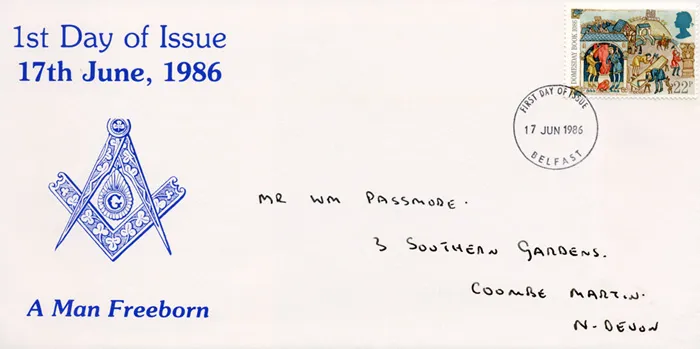 1st Day of Issue
17th June, 1986
DOMESDAY BOOK 1086
22P
FIRST DAY OF ISSUE
17 JUN 1986
BELFAST
G
MR WM PASSMORE.
3 SOUTHERN GARDENS.
COOMBE MARTIN.
N-DEVON
A Man Freeborn